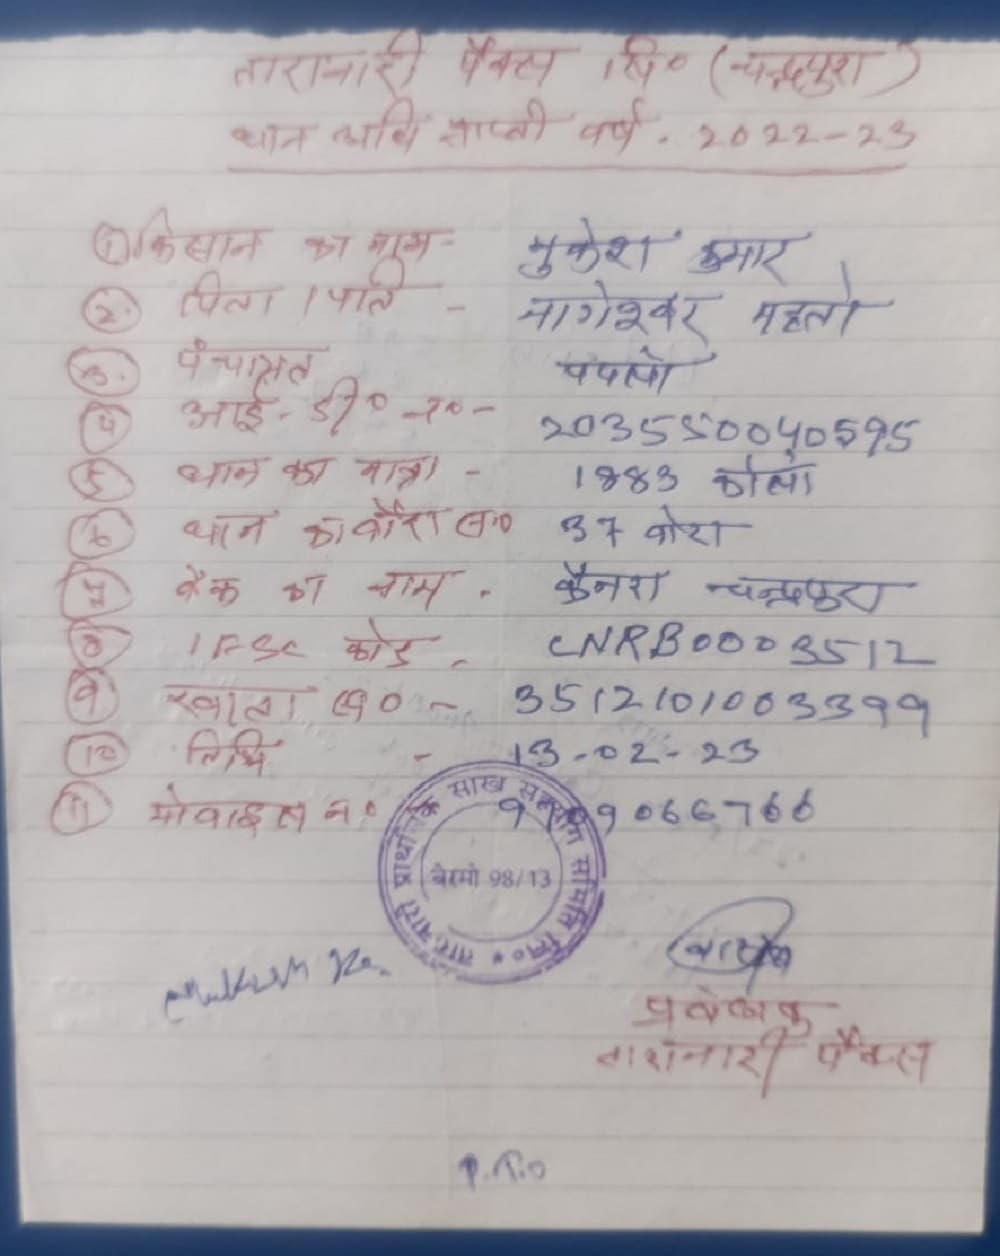 तारानारी पैक्स लि० (चन्द्रपुरा)
धान अधि प्राप्ती वर्ष - 2022-23
① किसान का नाम - मुकेश कुमार
② पिता / पति - नागेश्वर महतो
③ पंचायत पपलो
④ आई. डी० न० - 203550040595
⑤ धान का मात्रा - 1883 कीलो
⑥ धान का बोरा स० 37 बोरा
⑦ बैंक का नाम - कैनरा चन्द्रपुरा
⑧ IFSC कोड - CNRB0003512
⑨ खाता स० - 3512101003399
⑩ तिथि - 13-02-23
⑪ मोबाइल न० 066766
प्राथमिक साख सहयोग समिति लि०
बेरमो 98/13
Mukesh Ku.
प्रबंधक
तारानारी पैक्स
P.T.O